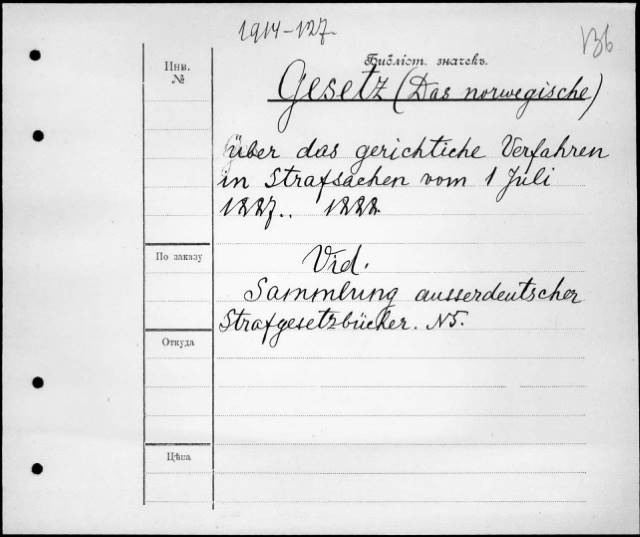 1914-127
136
Инв.
№
Библіот. значекъ.
Gesetz (Das norwegische)
über das gerichtiche Verfahren
in Strafsachen vom 1 Juli
1887.. 1888
Vid.
По заказу
Sammlung ausserdeutscher
Strafgesetzbücher. N5.
Откуда
Цѣна